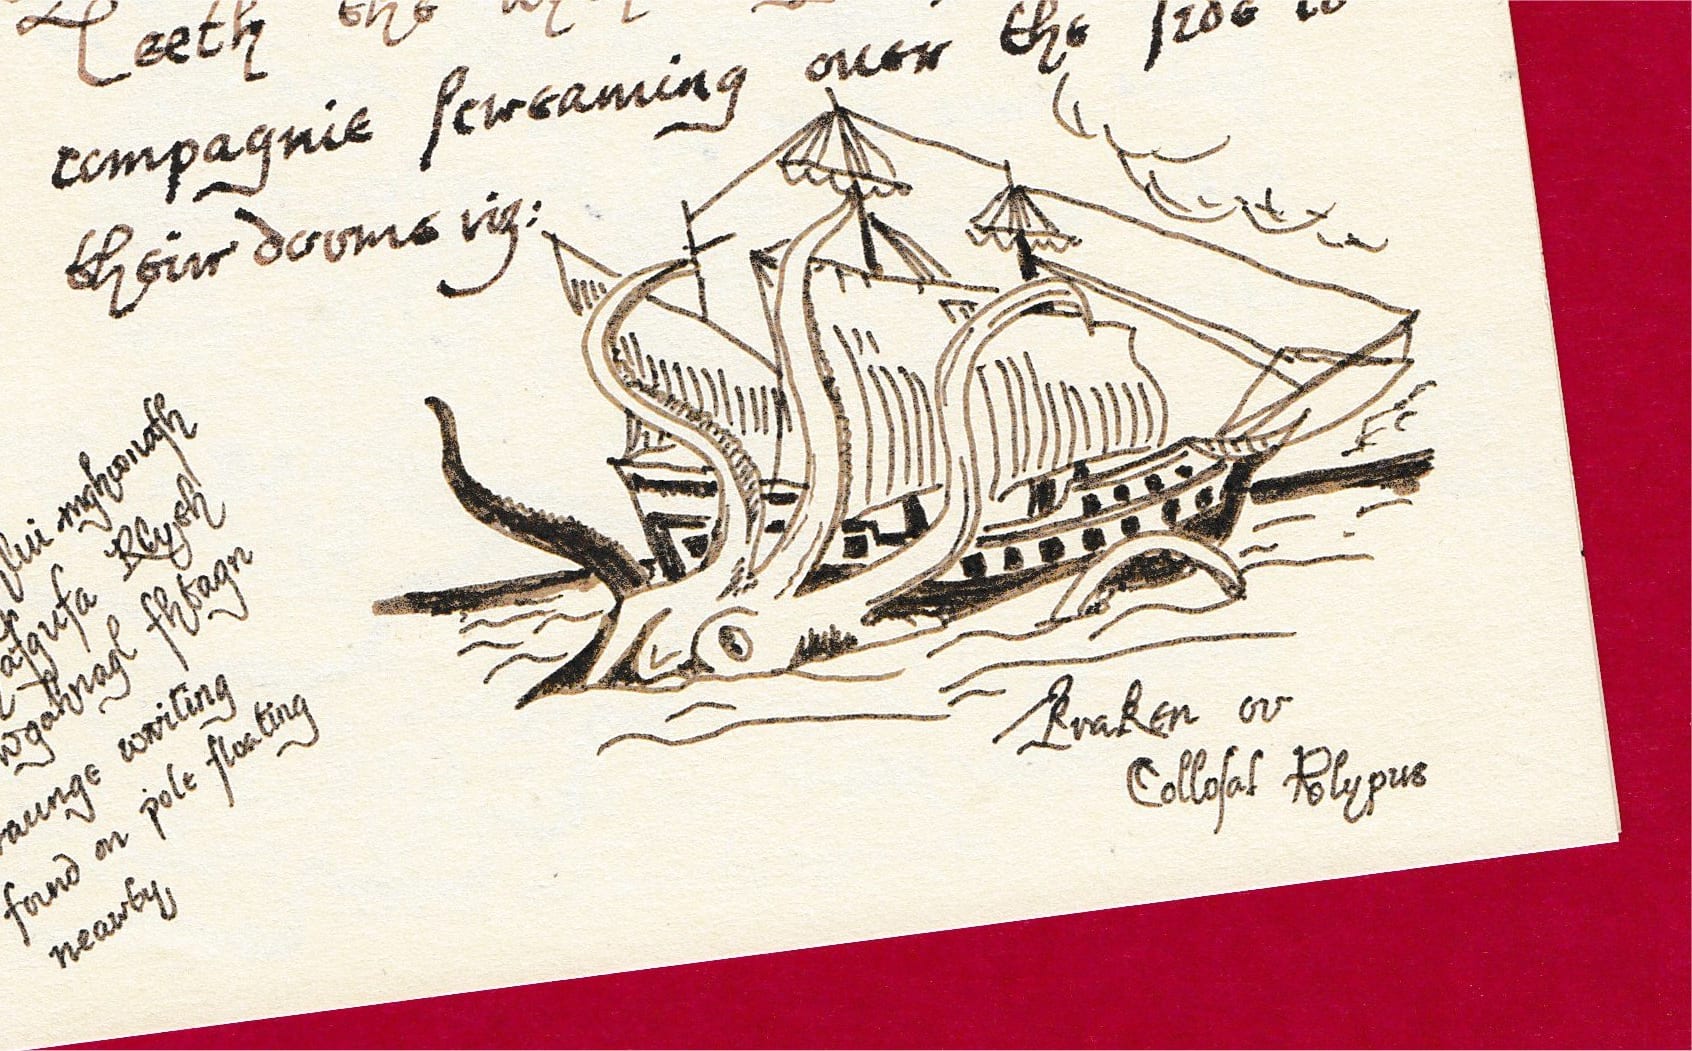 Teeth the
compagnie ſcreaming over the ſide to
their dooms viz:
mglwnafh
Rlyeh
wgahnagl fhtagn
writing
found on pole floating
nearby,
Kraken or
Colloſal Polypus